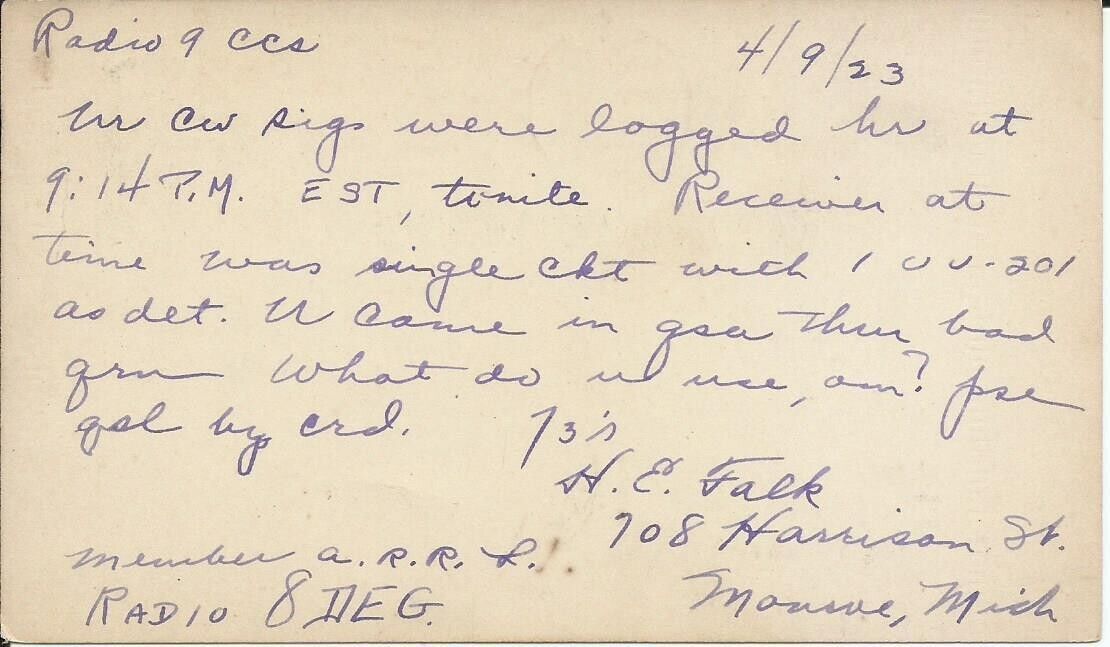 Radio 9 ccs
4/9/23
Ur CW sigs were logged hr at
9:14 P.M. EST, tonite. Receiver at
time was single ckt with 1 UV-201
as det. U came in qsa thru bad
qrn What do u use, om? pse
qsl by crd. 73's
H. E. Falk
708 Harrison St.
Monroe, Mich
member A.R.R.L.
RADIO 8DEG.